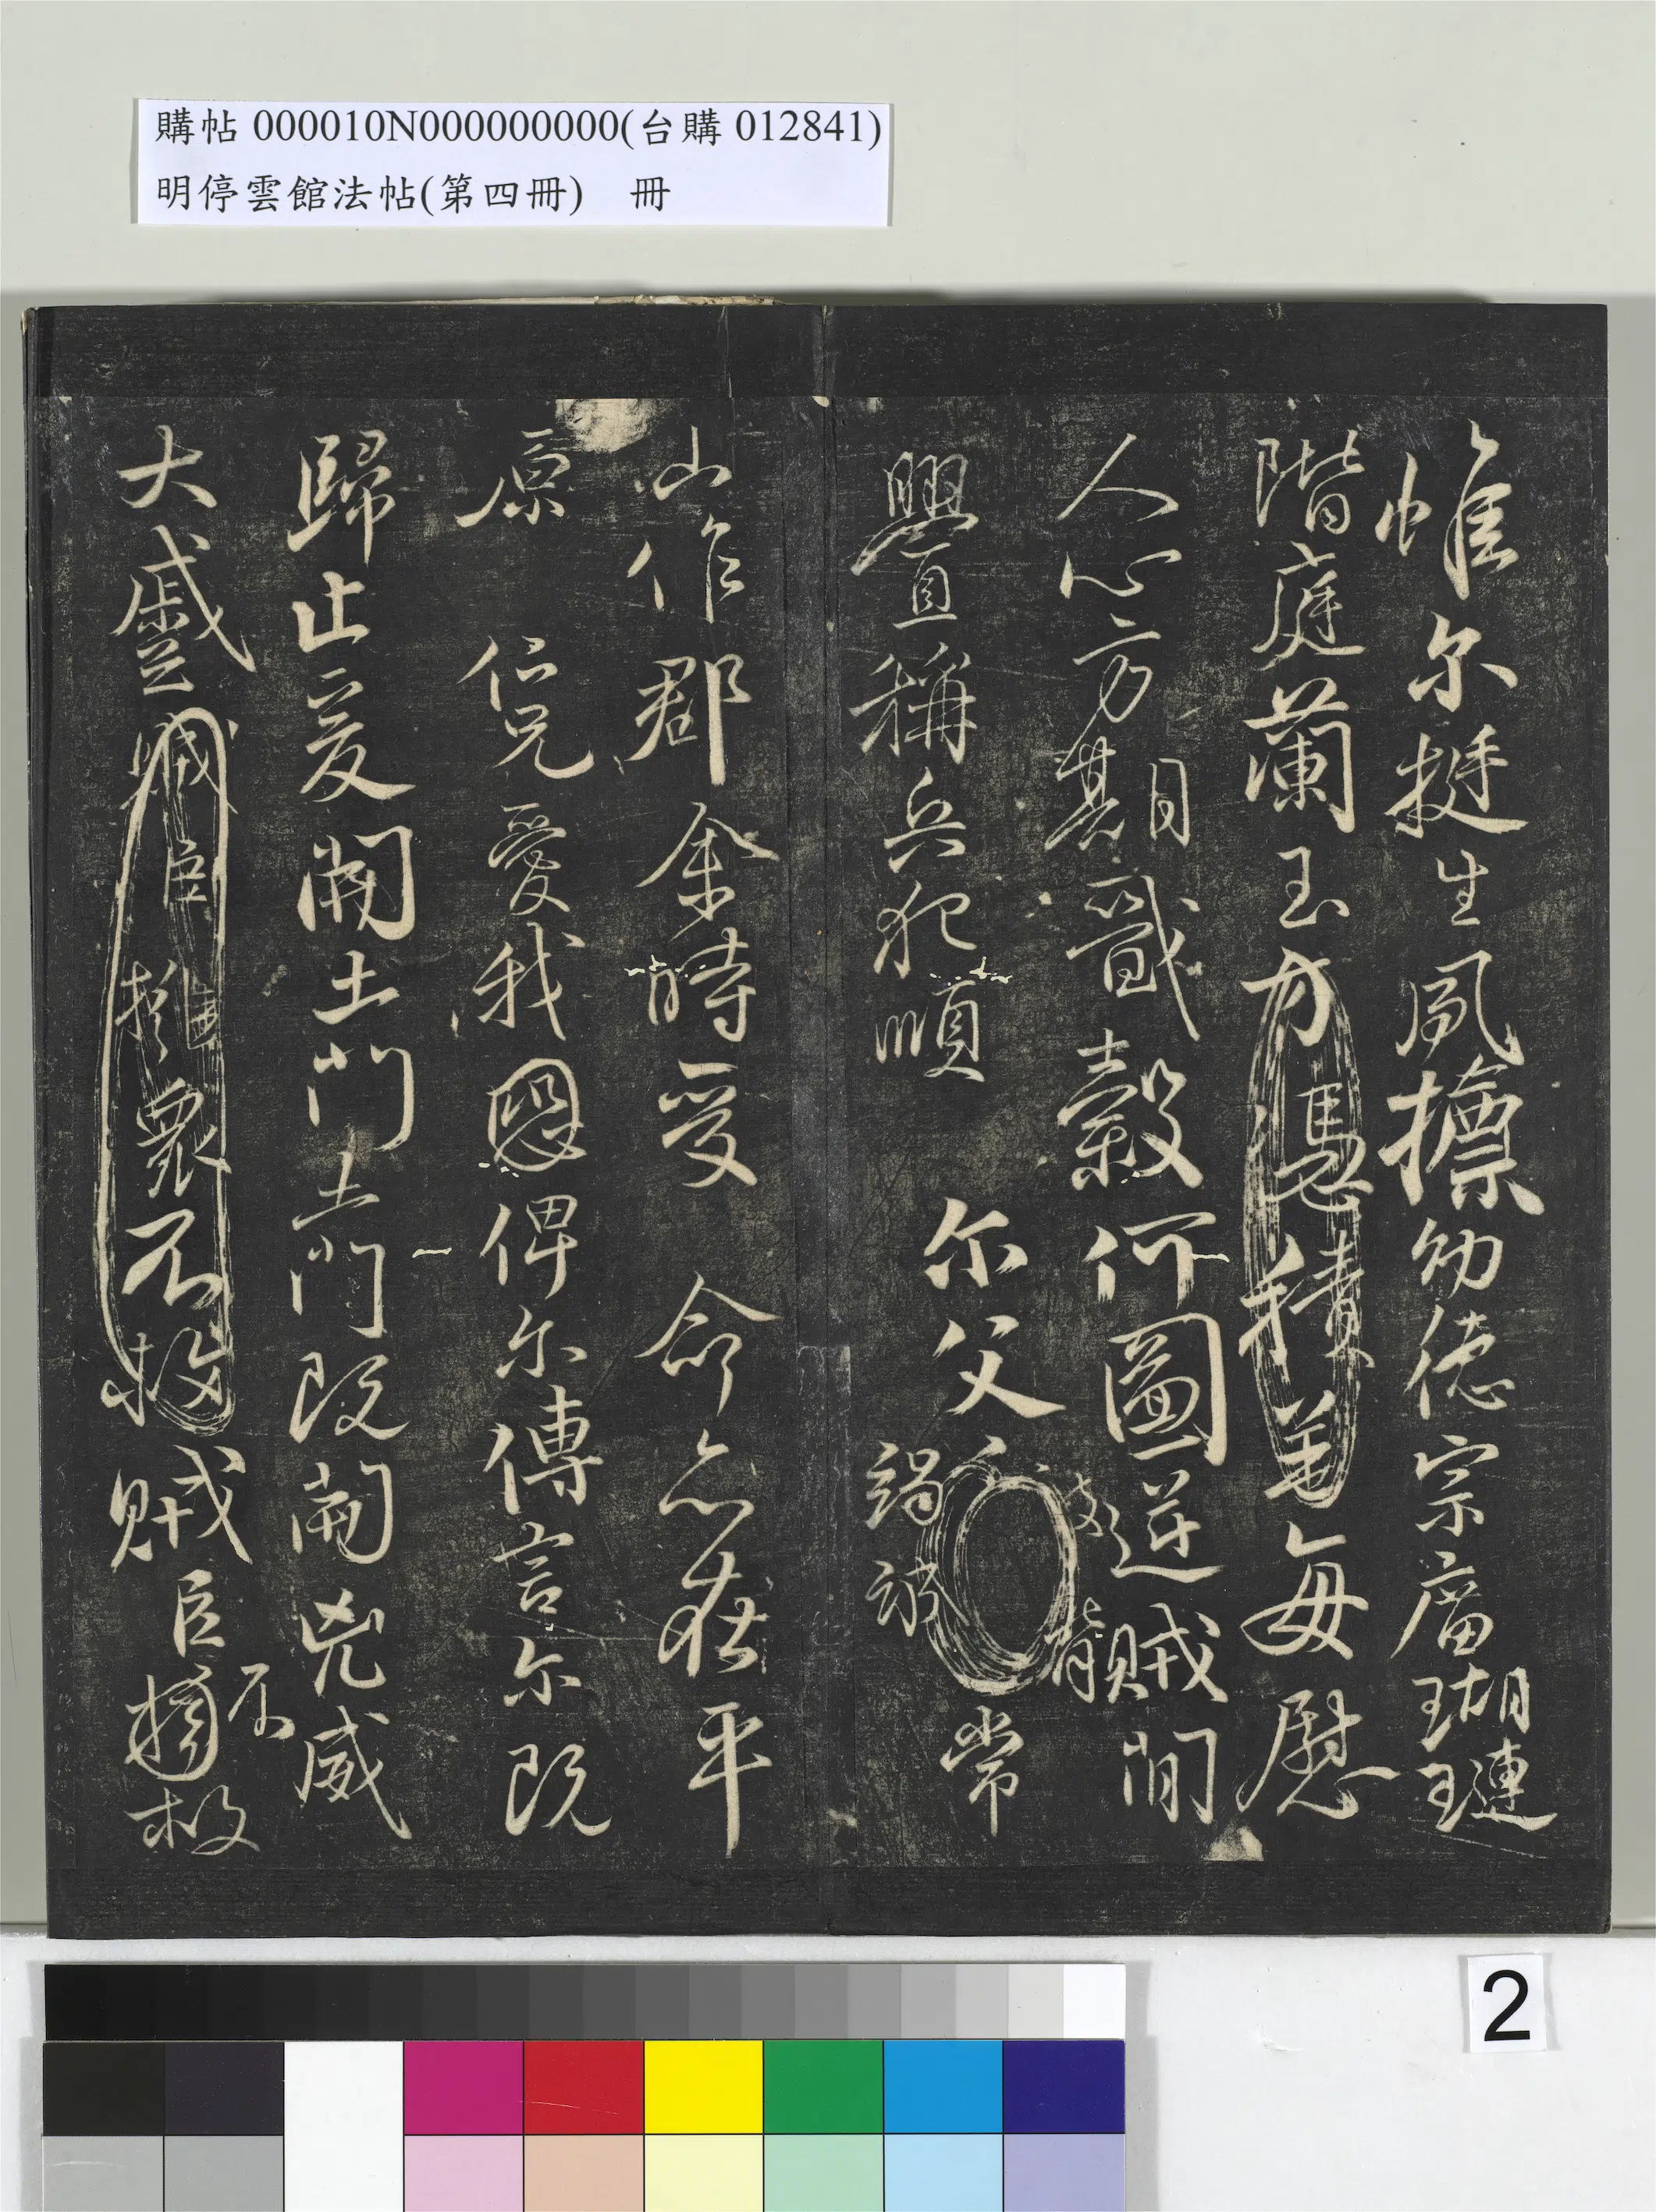 購帖 000010N000000000(台購 012841)
明停雲館法帖(第四冊) 冊
惟尔挺生夙標幼德宗廟瑚璉
階庭蘭玉方憑積善每慰
人心方期戩穀何圖逆賊間
舋稱兵犯順 尔父竭誠被脅常
山作郡余時受 命亦在平
原 仁兄愛我恩俾尔傳言尔既
歸止爰開土門土門既開兇威
大蹙賊臣擁眾不救賊臣不擁救
2